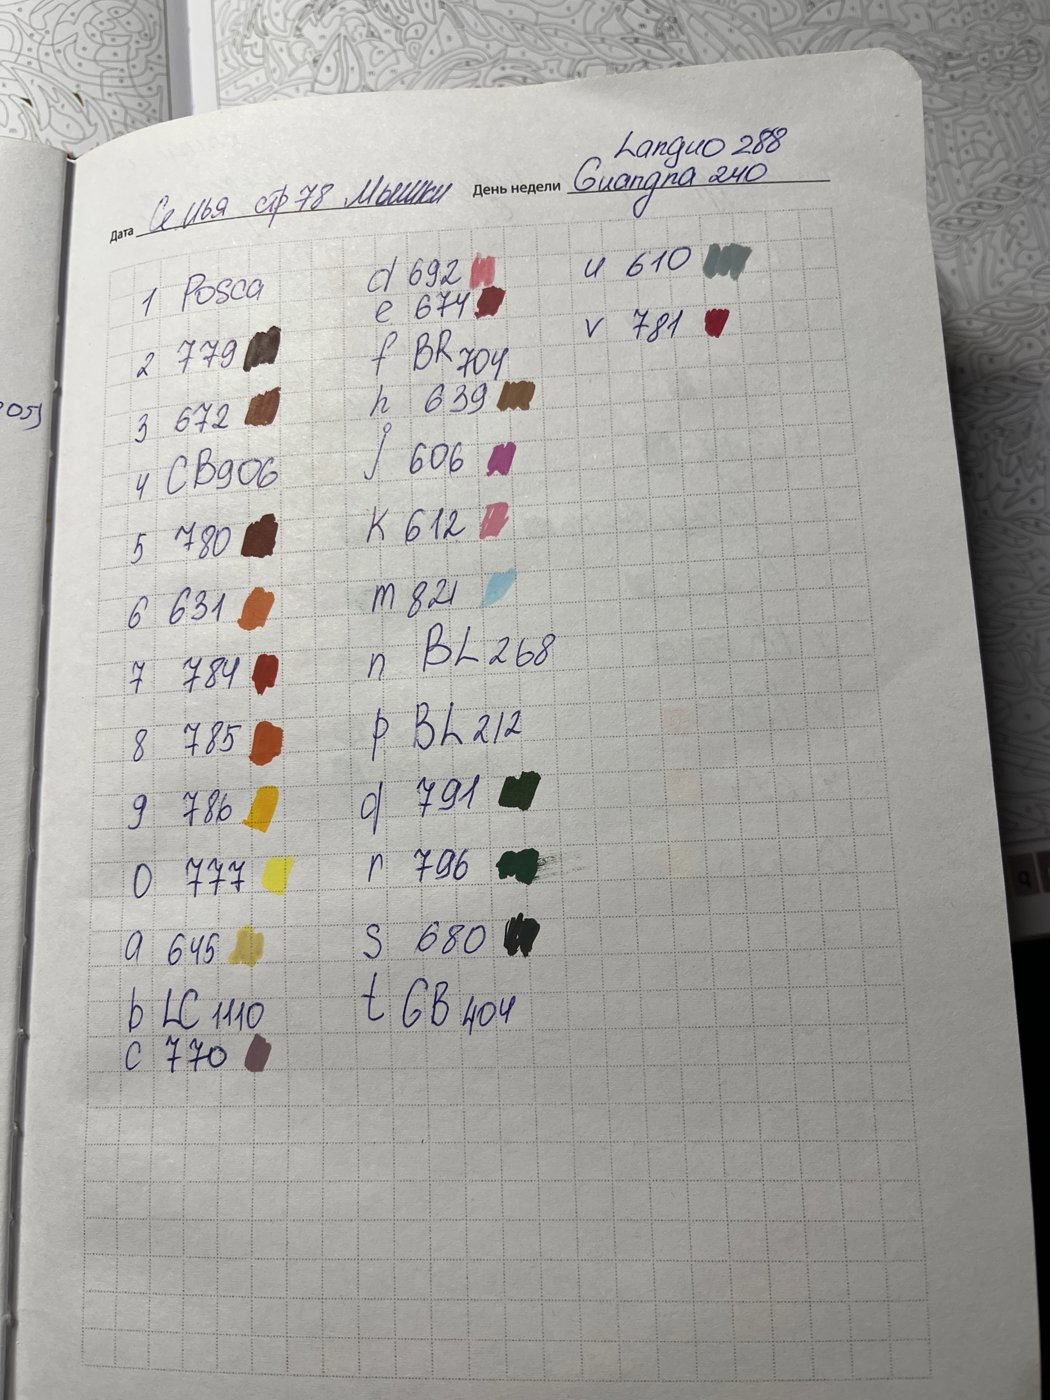 Languo 288
Дата Семья стр 78 Мышки День недели Guangna 240
1 Posca
2 779
3 672
4 CB906
5 780
6 631
7 784
8 785
9 786
0 777
a 645
b LC 1110
c 770
d 692
e 674
f BR 704
h 639
j 606
K 612
m 821
n BL 268
p BL 212
q 791
r 796
s 680
t GB 404
u 610
v 781
9